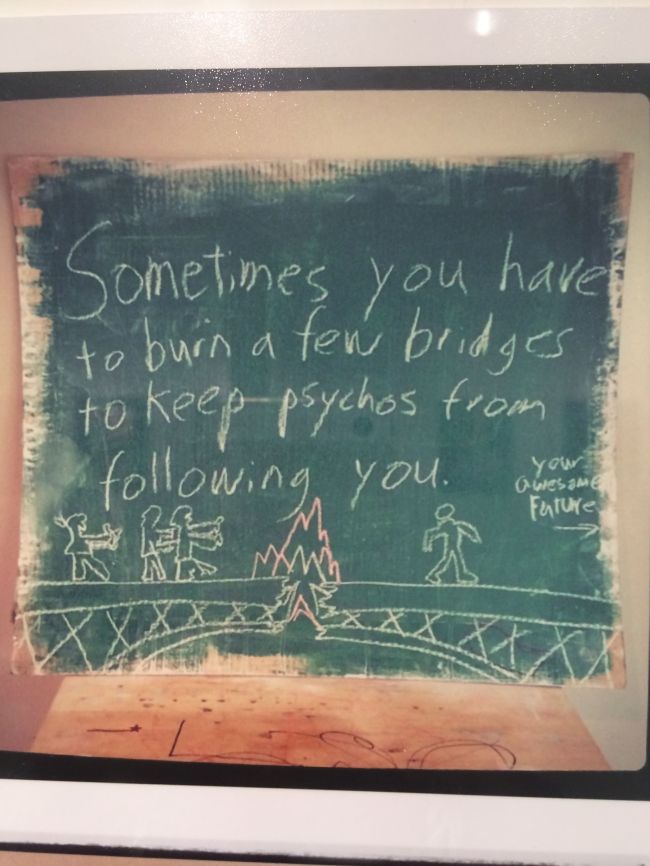 Sometimes you have
to burn a few bridges
to keep psychos from
following you.
your
awesome
Future